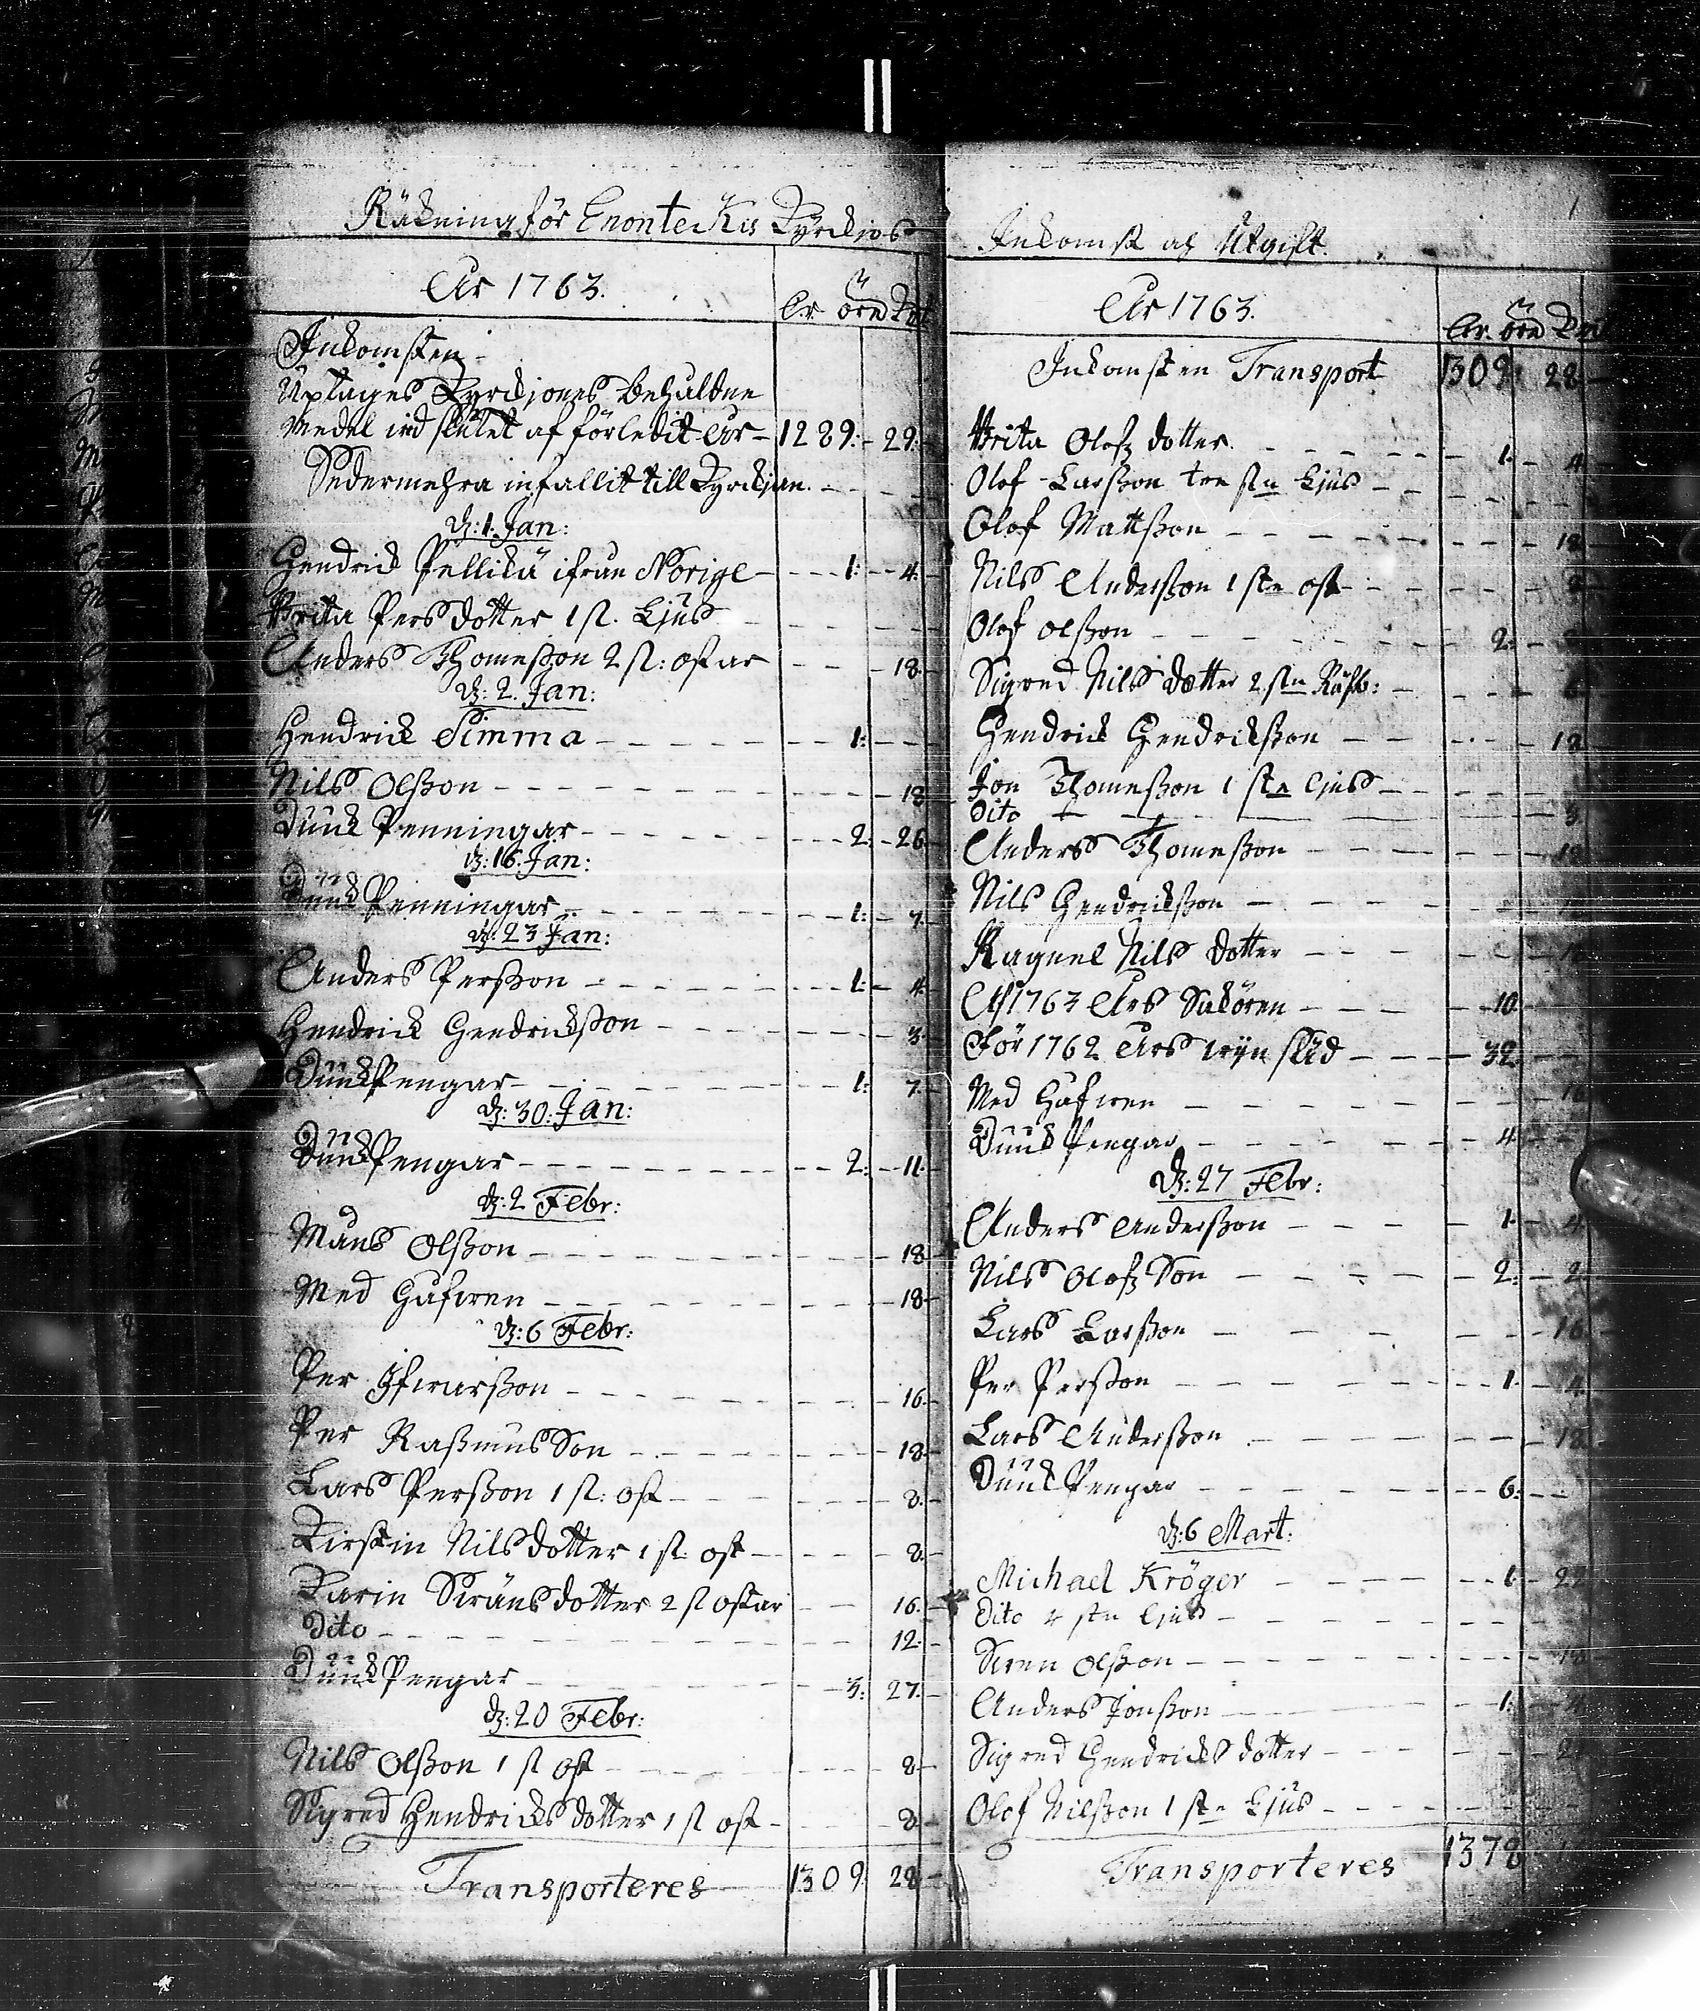 Räkning för Enonteikis Kyrckios
År 1763.
Cr. öre Kmt
Inkomsten
Uptages Kyrckiones behåldne
medel wid slutet af förledit År - 1289: - 29:
Sedermehra infallit till Kyrckian
d: 1. Jan:
Hendrick Pellikä ifrån Norige - 1: - 4.
Brita Persdotter 1 st. Ljus
Anders Thomeßon 2 st: ostar - 18.
d: 2. Jan:
Hendrick Simma - 1:
Nils Olßon - 18
Kunck Penningar - 2: - 26
d: 16. Jan:
Penningar - 1: - 7.
d: 23 Jan:
Anders Perßon - 1: - 4.
Hendrick Hendrickßon - 3.
Pengar - 1: 7.
d: 30. Jan:
Pengar - 2: - 11.
d: 2 Febr:
Måns Olßon - 18
Med Håfwen - 18
d: 6 Febr:
Per Ifwarßon - 16.
Per Raßmus Son - 18
Lars Perßon 1 st: ost - 8.
Kirstin Nilsdotter 1 st: ost - 8.
Karin Swänsdotter 2 st ostar - 16.
Dito - 12.
Pengar - 3: 27.
d: 20 Febr:
Nils Olßon 1 st ost - 8
Sigred Hendricks dotter 1 st ost - 8.
Transporteres 1309 28
Inkomst och Utgift.
År 1763.
Cr. öre Kmt
Inkomsten Transport 1309: 28
Brita Olofz dotter - 1: 4
Olof Larßon tre stn Ljus
Olof Mattßon - 18
Nils Anderßon 1 stn ost
Olof Olßon - 2:
Sigred Nils dotter 2 stn - 6
Hendrick Hendrickßon - 18
Jon Thomeßon 1 stn Ljus
Dito - 3
Anders Thomeßon
Nils Hendrickßon
Ragnel Nils dotter
Af 1763 Års Sakören - 10
För 1762 Års - 32
Med Håfwen
Pengar - 4
d: 27 Febr:
Anders Anderßon - 1. 4
Nils Olofz Son - 2: 2
Lars Larßon - 16
Per Perßon - 1. 4
Lars Anderßon - 18
Pengar - 6:
d: 6 Mart:
Michael Kröger - 1.
Dito stn Ljus
Swen Olßon
Anders Jonßon - 1: 4
Sigred Hendricks dotter
Olof Nilßon 1 stn Ljus
Transporteres 1378